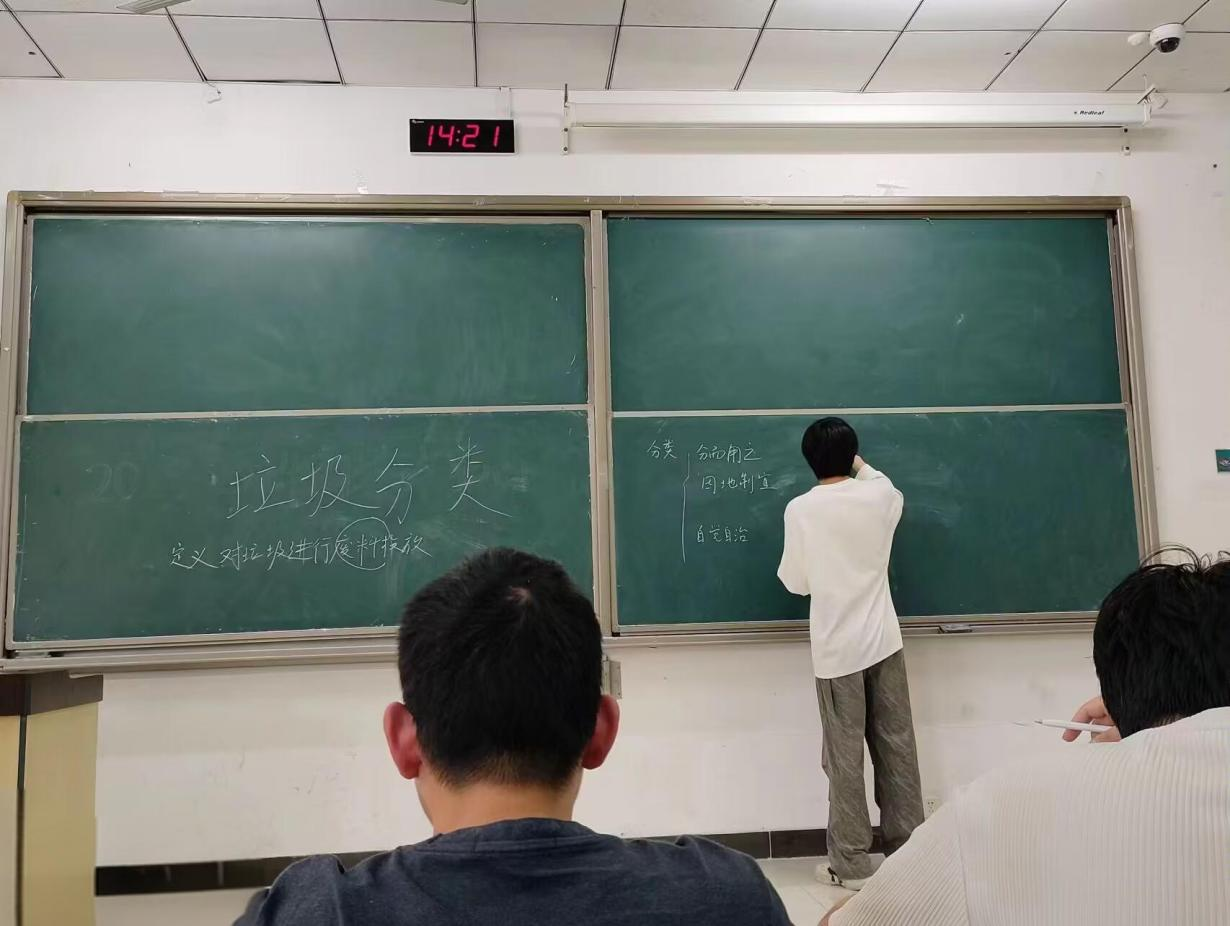 14:21
Redleaf
垃圾分类
定义 对垃圾进行废料投放
分类 分而用之
因地制宜
自觉自治